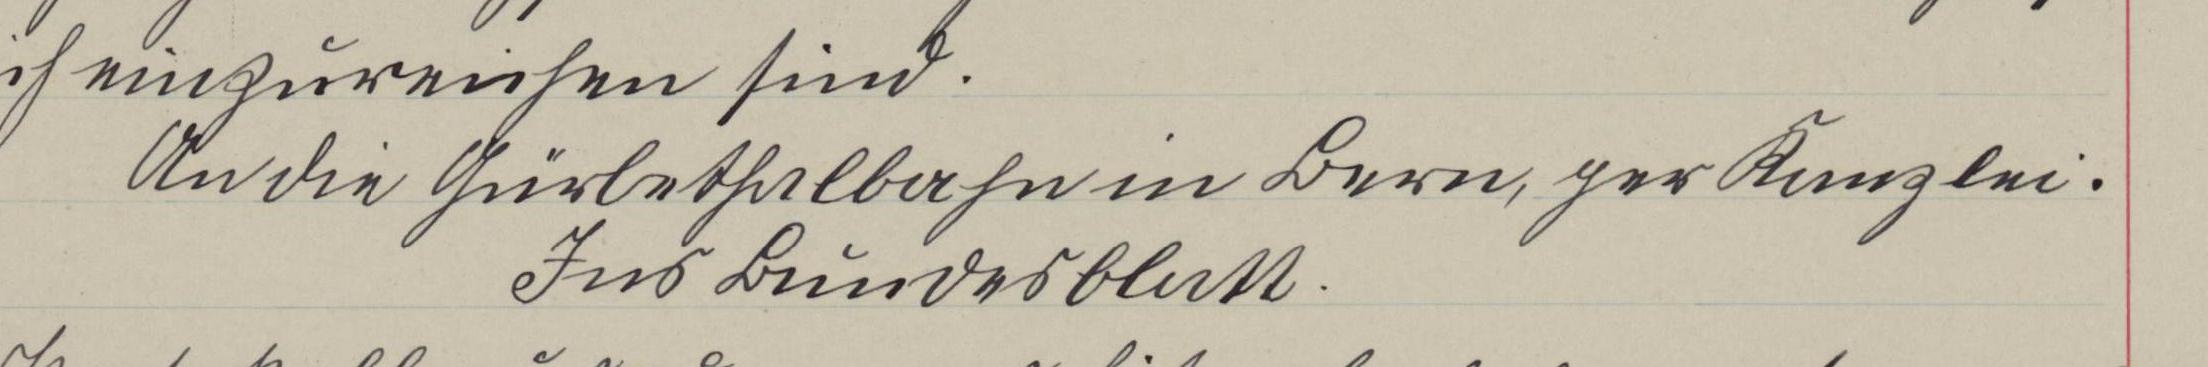 ich einzureichen sind.
An die Gürbethalbahn in Bern, per Kanzlei.
Ins Bundesblatt.